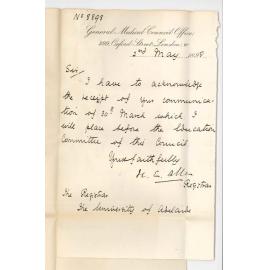 No 8898
General Medical Council Office,
299, Oxford Street, London, W.
2nd May, 1898
Sir,
I have to acknowledge
the receipt of your communica-
tion of 30th March which I
will place before the Education
Committee of this Council
Yours faithfully
H. C. Allen
Registrar
The Registrar
The University of Adelaide